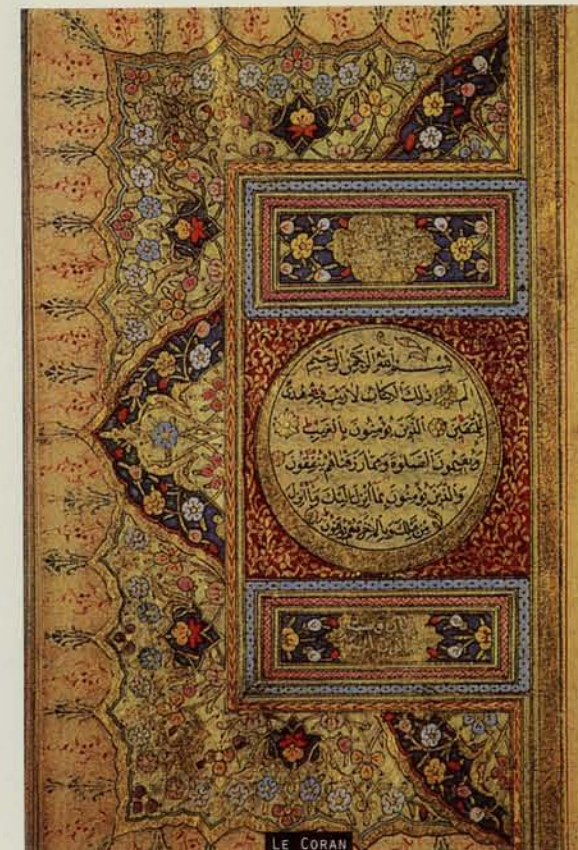 بسم الله الرحمن الرحيم
الم ذلك الكتاب لا ريب فيه هدى
للمتقين الذين يؤمنون بالغيب
ويقيمون الصلوة ومما رزقناهم ينفقون
والذين يؤمنون بما أنزل إليك وما أنزل
من قبلك وبالآخرة هم يوقنون
LE CORAN